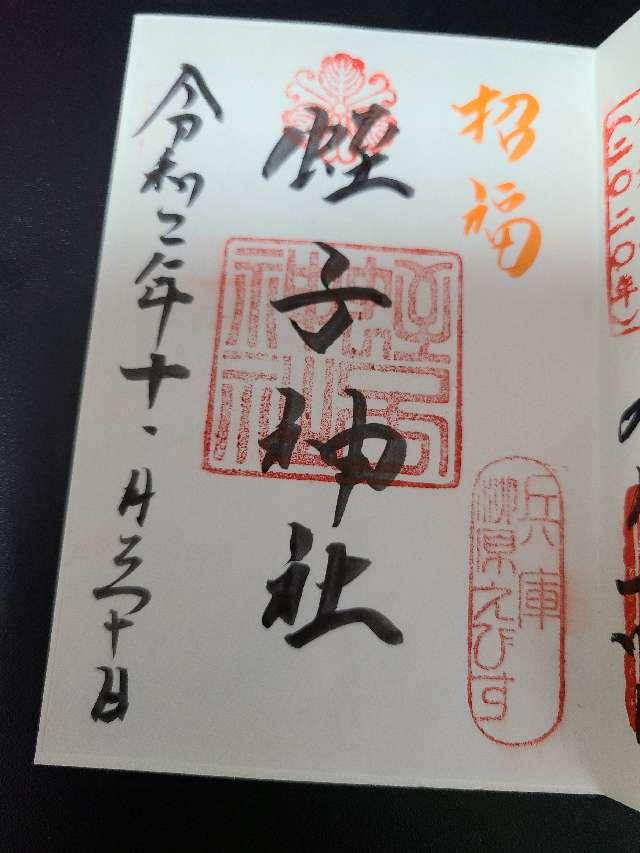 (二〇二〇年)
招福
兵庫
柳原えびす
蛭子神社
蛭子神社
令和二年十一月三十日